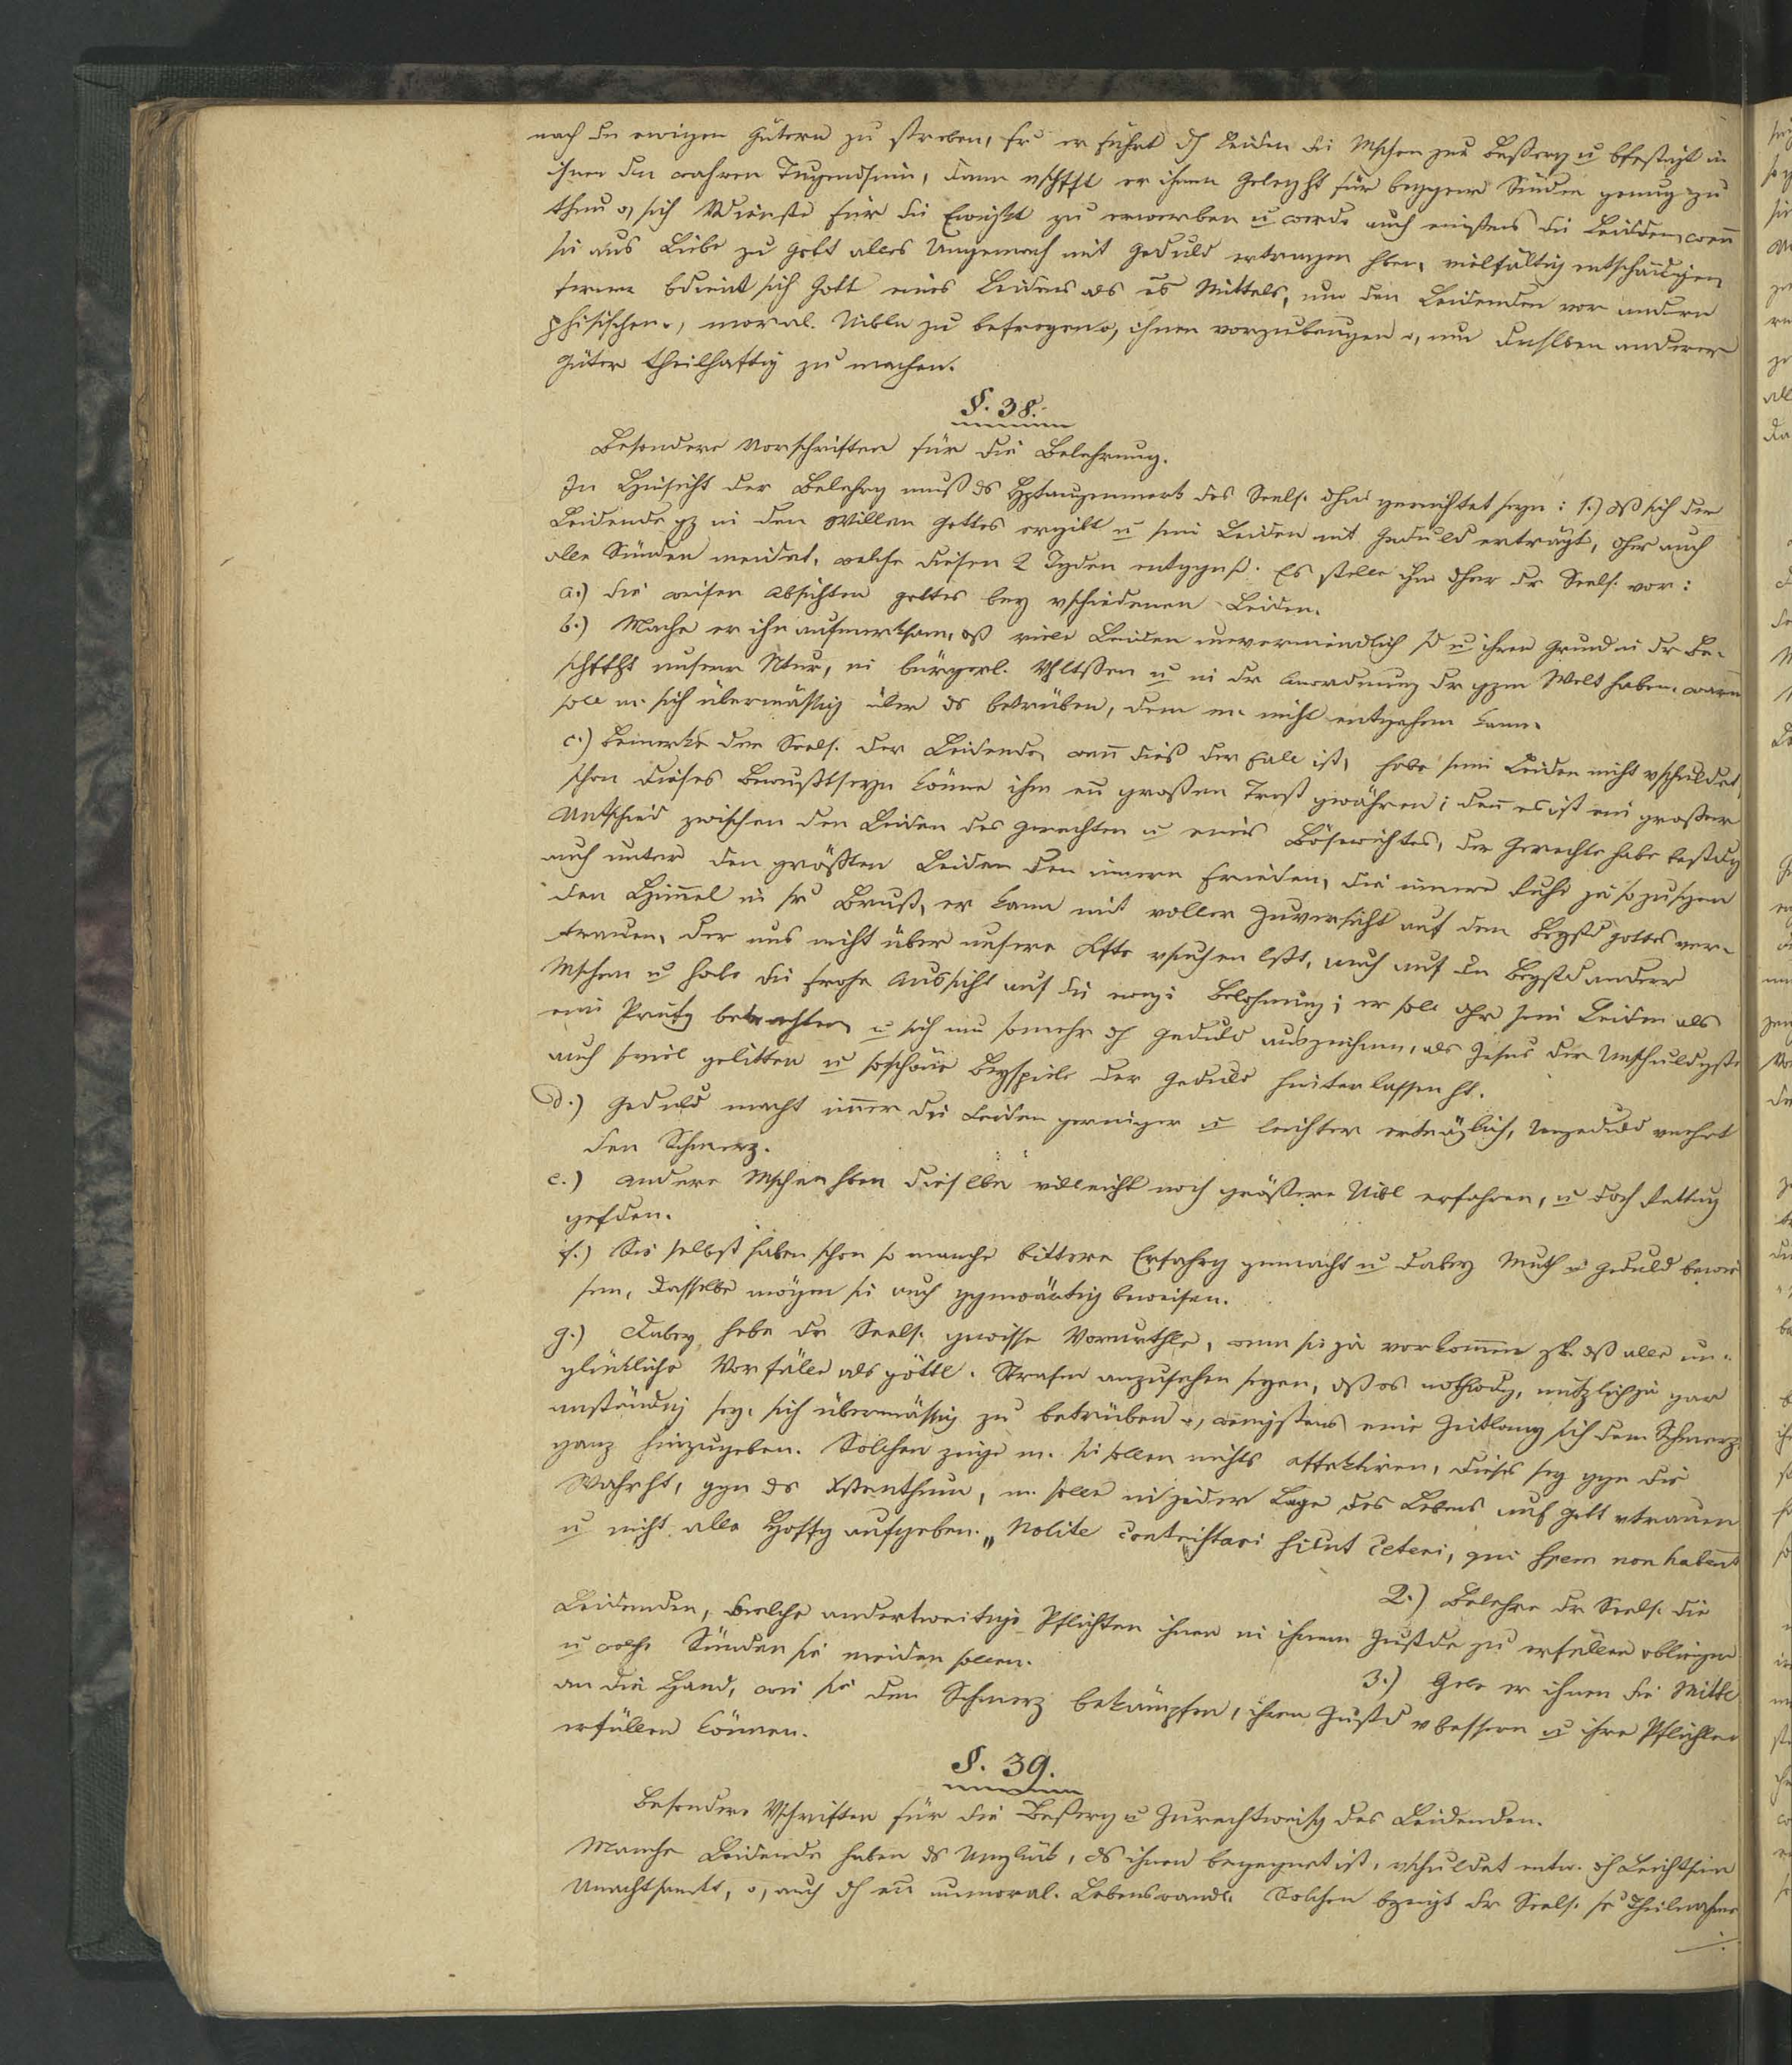 nach den ewigen Gütern zu streben, er führt dh Leiden die Mschen zur Beßerg u bfestigt in
ihnen den wahren Tugendsinn, dann vschfft er ihnen Geleght für begangene Sünden genug zu
thun o, sich Vdienste für die Ewigkt zu erwerben u werde auch einstens die Leidden, wenn
sie aus Liebe zu Gott alles Ungemach mit Geduld ertragen hben, vielfältig entschädigen
ferner bdient sich Gott eines Leidens als es Mittels, um den Leidenden vor andern
phisischen o, moral. Uibln zu befreyen o, ihnen vorzubeugen o, um dnslben anderer
Güter theilhaftig zu machen.
§. 38.
Besondere Vorschriften für die Belehrung.
In Hinsicht der Belehrg muß ds Hptaugenmerk des Seels. dhin gerichtet seyn: 1.) dß sich der
Leidende gz in den Willen Gottes ergibt u sein Leiden mit Geduld erträgt, dher auch
alle Sünden meidet, welche diesen 2 Tgden entggnß. Es stelle ihm dher dr Seels. vor:
a.) die weisen Absichten Gottes bey vschiedenen Leiden.
b.) Mache er ihn aufmerksam, dß viele Leiden unvermeidlich sd u ihren Grund in dr Be-
schffht unserer Ntur, in bürgerl. Vhltßen u in dr Anordnung dr gzen Welt haben, warum
solle m. sich übermäßig über ds betrüben, dem m. nicht entgehen kann.
c.) Bemerke der Seels. der Leidende, wenn dieß der Fall ist, habe sein Leiden nicht vschuldet,
schon dieses Bewußtseyn könne ihm en großen Trost gwähren; den es ist ein großer
Untschied zwischen den Leiden des Gerechten u eines Bösewichtes, der Gerechte habe bestdg
auch unter den größten Leiden den innern Frieden, die innere Ruhe ja so zusagen
den Himel in sr Brust, er kann mit voller Zuversicht auf den Beystd Gottes ver-
trauen, der uns nicht über unsere Kfte vsuchen lßt, auch auf den Beystd anderer
Mschen u habe die frohe Aussicht auf die ewge Belohnung; er solle dhr sein Leiden als
eine Prüfg betrachten u sich um somehr dh Geduld auszeichnen, als Jesus der Unschuldigste
auch soviel gelitten u soschöne Beyspiele der Geduld hinterlassen ht.
d.) Geduld macht immer die Leiden geringer u leichter erträglich, Ungeduld mehrt
den Schmerz.
e.) andere Mschen hben dieselben villeicht noch größere Uibl erfahren, u doch Rettug
gefden.
f.) Sie selbst haben schon so manche bittere Erfahrg gemacht u dabey Muth u Geduld bewie
sen, dasselbe mögen sie auch ggenwärtig beweisen.
g.) Dabey hebe dr Seels. gewisse Vorurthle, wenn sie ja vorkomen zB. dß alle un-
glückliche Vorfälle als göttl. Strafen anzusehen seyen, dß es nothwdg, nützlich ja gar
anständig sey, sich übermäßig zu betrüben o, wenigstens eine Zeitlang sich dem Schmerz
ganz hinzugeben. Solchen zeige m. sie sollen nichts affektiren, dieses sey ggn die
Wahrht, ggn ds Xstenthum, m. solle in jeder Lage des Lebens auf Gott vtrauen
u nicht alle Hoffg aufgeben. „Nolite contristari sicut ceteri, qui spem non habent
2.) Belehre dr Seels. die
Leidenden, welche anderweitige Pflichten ihnen in ihrem Zustde zu erfüllen obliegen
u welche Sünden sie meiden sollen.
3.) Gebe er ihnen die Mittl
an die Hand, wie sie den Schmerz bekämpfen, ihren Zustd vbessern u ihre Pflichten
erfüllen können.
§. 39.
Besondere Vschriften für die Beßerg u Zurechtweisg des Leidenden.
Manche Leidende haben ds Unglück, ds ihnen begegnet ist, vschuldet entw. dh Leichtsinn
Unachtsamkt, o, auch dh en unmoral. Lebenswandl. Solchen bzeigt dr Seels. se Theilnahme